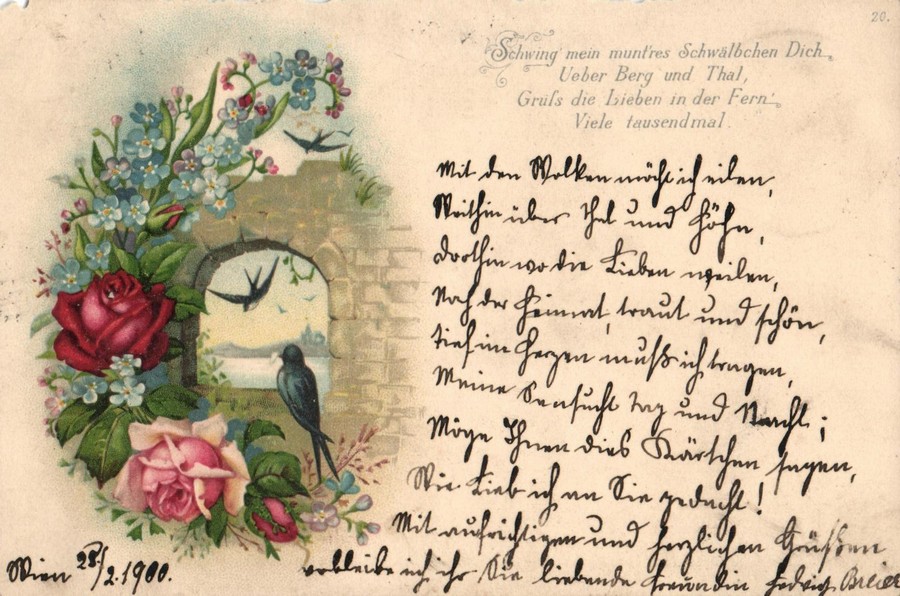 20.
Schwing' mein muntres Schwälbchen Dich
Ueber Berg und Thal,
Grüß die Lieben in der Fern'
Viele tausendmal.
Mit den Wolken möcht ich eilen,
Weithin über Thal und Höhn,
dorthin wo die Lieben weilen,
Nach der Heimat, traut und schön,
tief im Herzen muß ich tragen,
Meine Sensucht tag und Nacht;
Möge Ihnen dies Kärtchen sagen,
Wie Lieb ich an Sie gedacht!
Mit aufrichtigen und herzlichen Grüßen
verbleibe ich ihr Sie liebende freundin Hedwig Breier
Wien 28/2.1900.